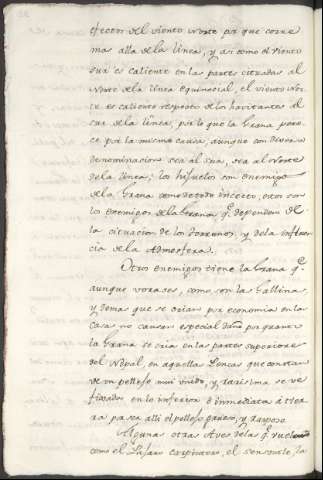 efectos del viento Norte por que corre
mas alla de la linea, y asi como el viento
sur es caliente en las partes citradas al
Norte de la linea equinoccial, el viento Nor-
te es caliente respecto de los havitantes al
sur de la linea, por lo que la Grana pade-
ce por la misma causa, aunque con diversa
denominacion sea al sur, sea al Norte
de la linea; los hijuelos son enemigos
de la Grana como de todo insecto, estos son
los enemigos de la Grana q.e dependen de
la cituacion de los terrenos, y de la influen-
cia de la Atmosfera.
Otros enemigos tiene la Grana q.e
aunque voraces, como son las Gallinas
y demas que se crian por economia en las
casas no causan especial daño porque
la Grana se cria en las partes superiores
del Nopal, en aquellas Pencas que constan
de un pellejo mui unido, y rarisima se ve
fixada en lo inferior e inmediata á tier-
ra pues alli el pellejo grueso, y
Algunas otras Aves de las q.e vuelan
como el Pajaro carpintero, el sensontle, la